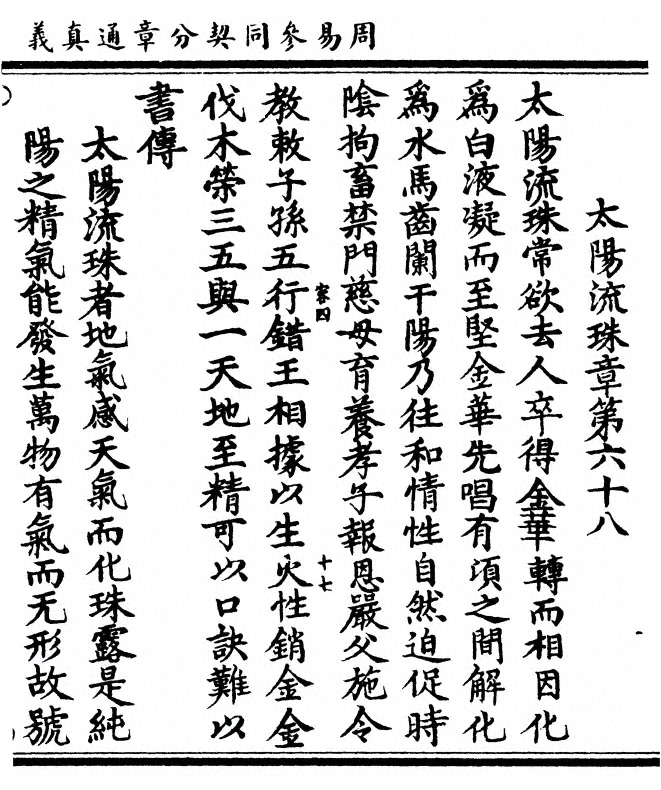 周易參同契分章通真義
太陽流珠章第六十八
太陽流珠常欲去人卒得金華轉而相因化
爲白液凝而至堅金華先唱有頃之間解化
爲水馬齒闌干陽乃往和情性自然迫促時
陰拘畜禁門慈母育養孝子報恩嚴父施令
卷四
十七
教敕子孫五行錯王相據以生火性銷金金
伐木榮三五與一天地至精可以口訣難以
書傳
太陽流珠者地氣感天氣而化珠露是純
陽之精氣能發生萬物有氣而无形故號